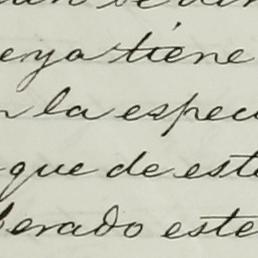 tiene
la espec
que de est
erado este